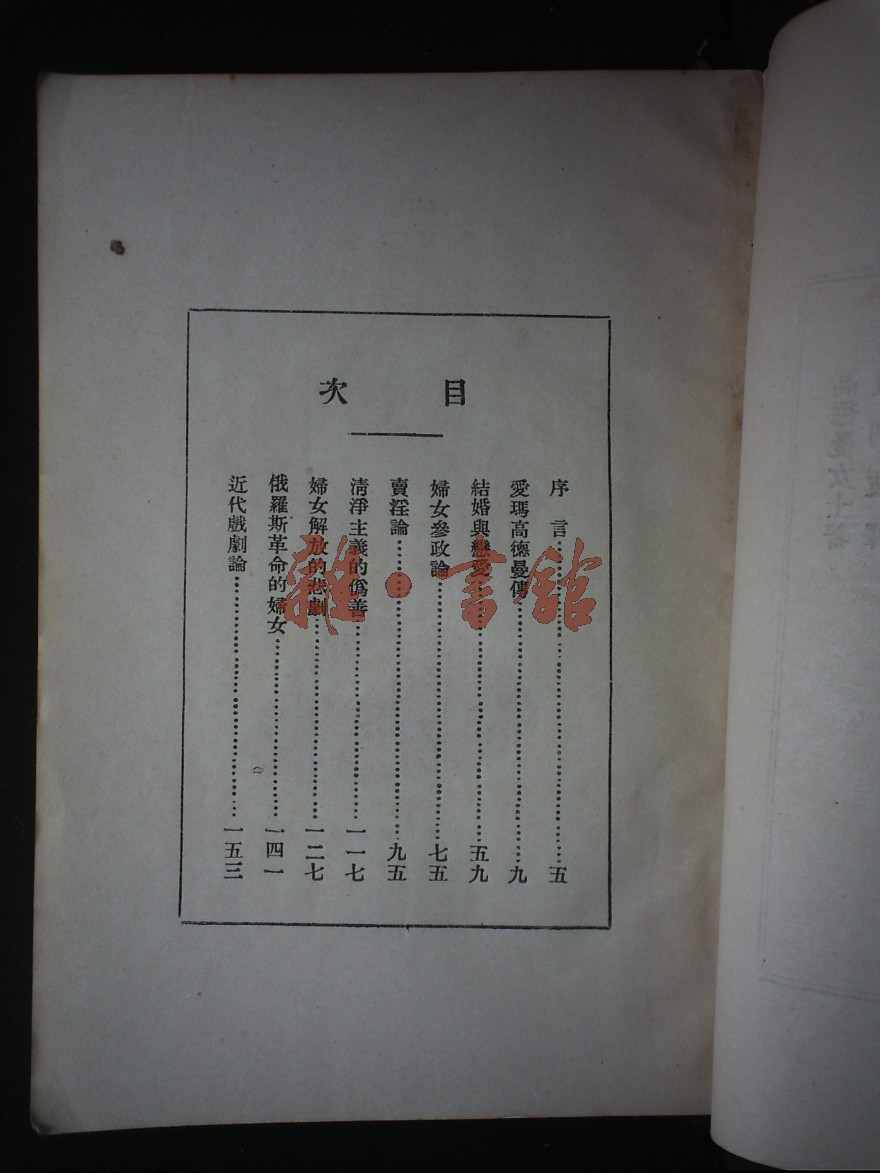 目次
序言……五
愛瑪高德曼傳……九
結婚與戀愛……五九
婦女參政論……七五
賣淫論……九五
清淨主義的僞善……一一七
婦女解放的悲劇……一二七
俄羅斯革命的婦女……一四一
近代戲劇論……一五三
雜·書館